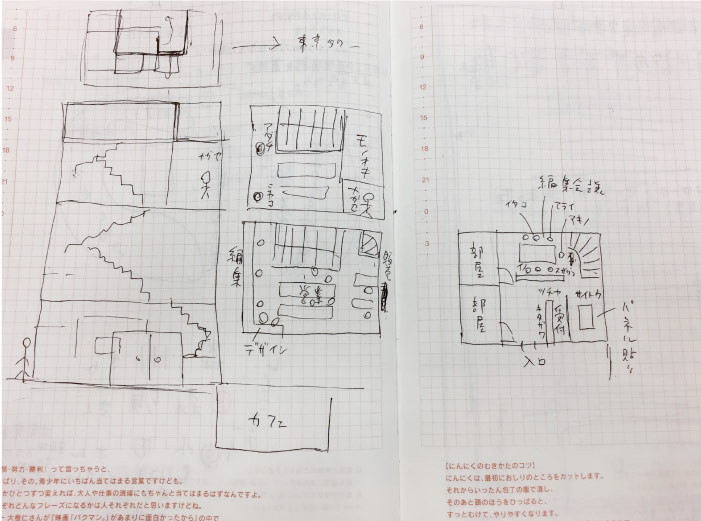 → 東京タワー
モノオキ
ナガセ
編集
営業
販売
デザイン
カフェ
編集会議
イタコ
アライ
マキノ
部屋
部屋
ツチヤ
受付
サイトウ
パネル貼り
入口
8
9
12
15
18
21
0
3
6
9
12
15
18
21
0
3
情・努力・勝利」って言っちゃうと、
ばり、その、青少年にいちばん当てはまる言葉ですけども。
かひとつずつ変えれば、大人や仕事の現場にもちゃんと当てはまるはずなんですよ。
ぞれどんなフレーズになるかは人それぞれだと思いますけどね。
ー大根仁さんが『映画「バクマン。」があまりに面白かったから』の中で
【にんにくのむきかたのコツ】
にんにくは、最初におしりのところをカットします。
それからいったん包丁の腹で潰し、
そのあと頭のほうをひっぱると、
すっとむけて、やりやすくなります。